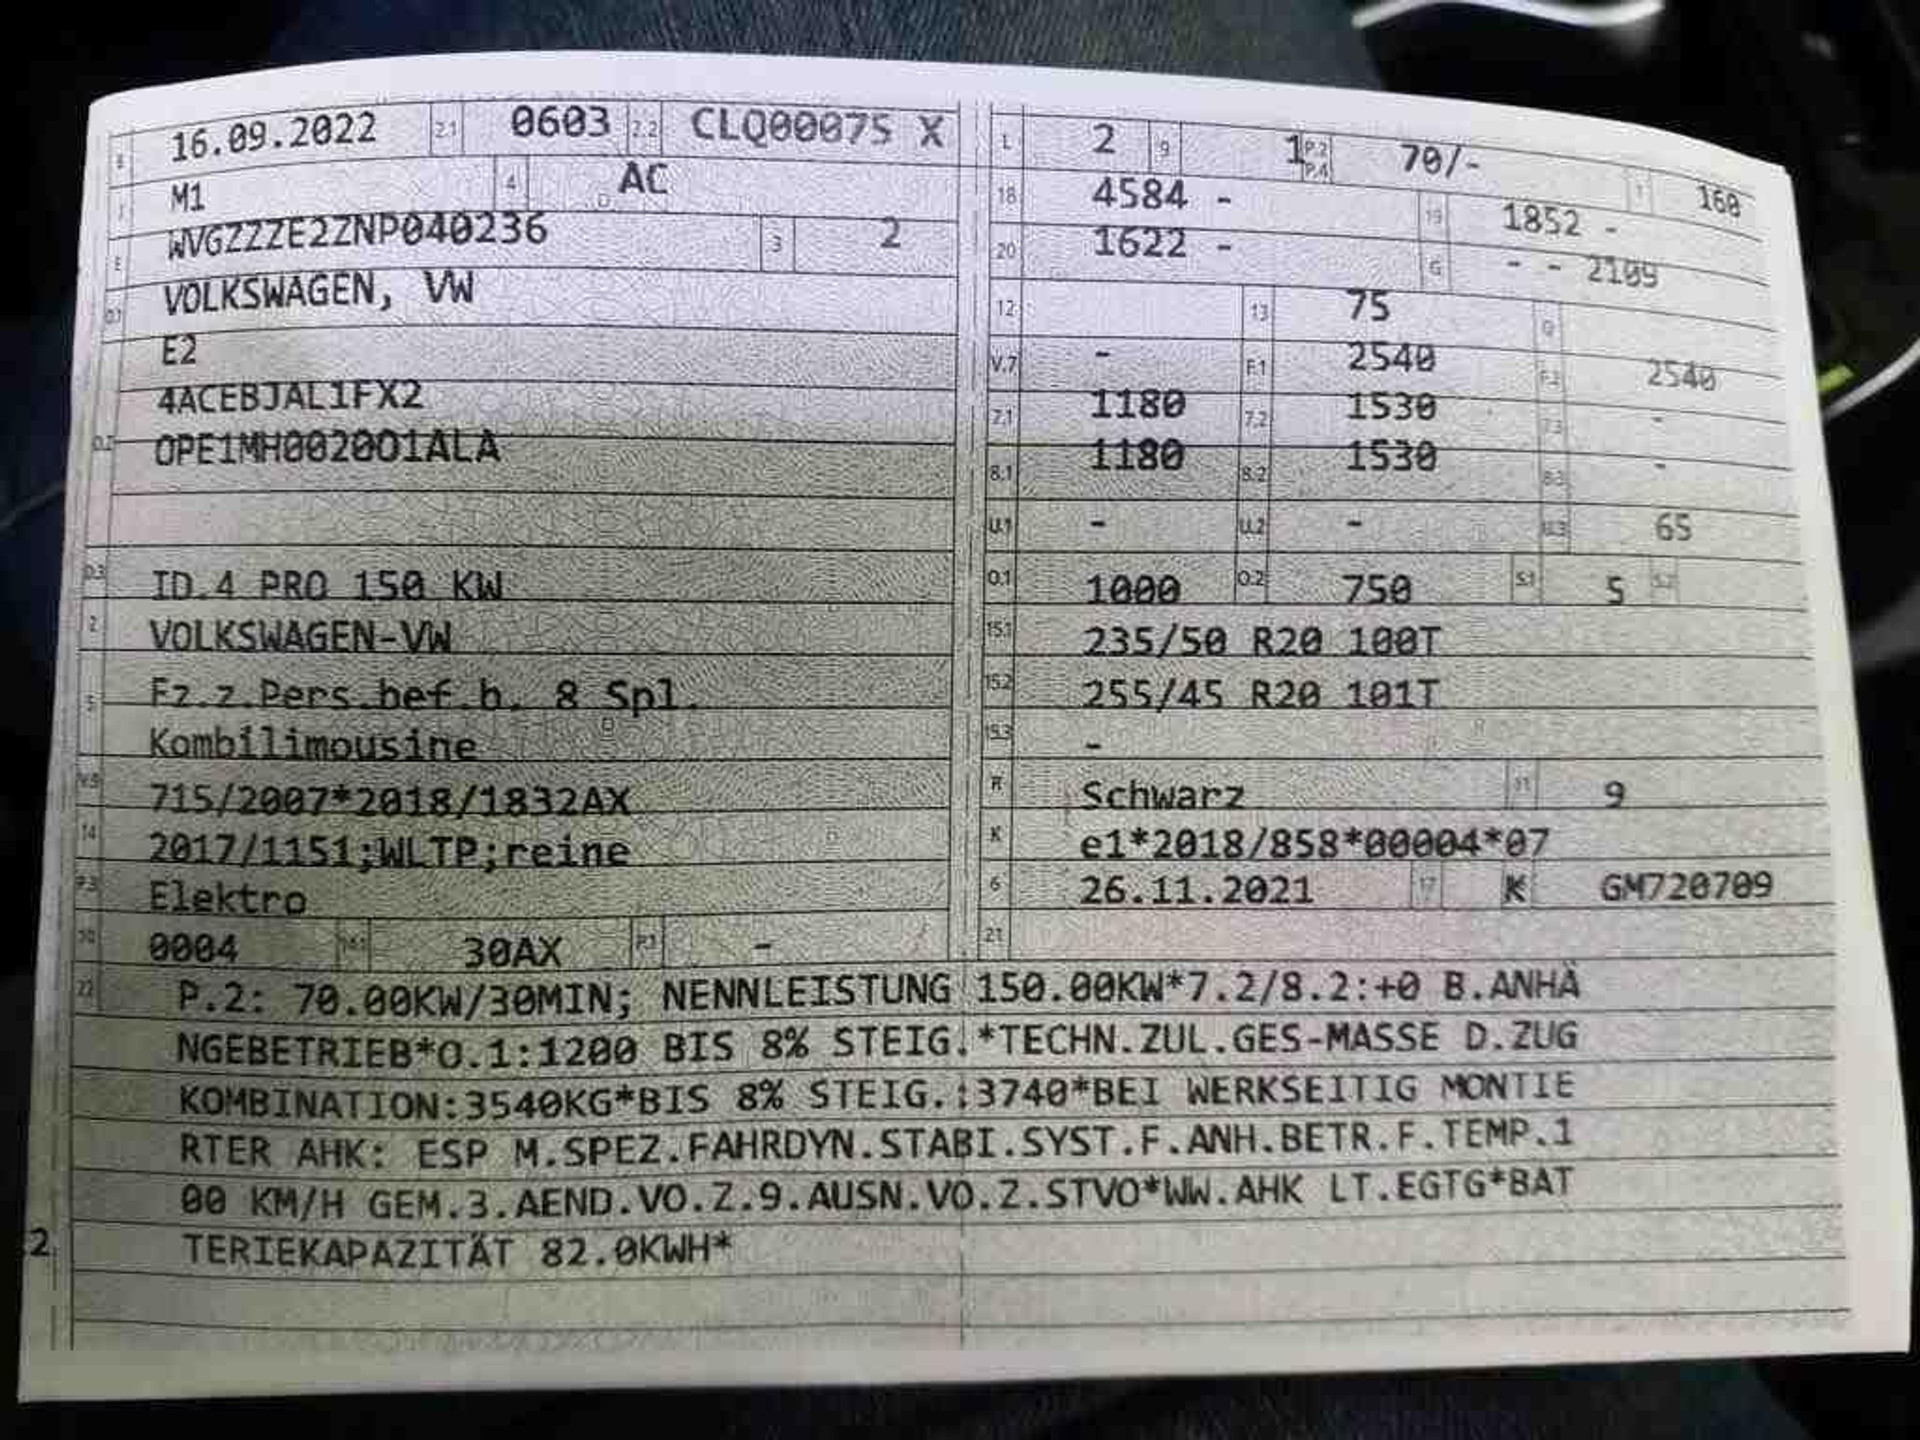 B 16.09.2022 2.1 0603 2.2 CLQ00075 X
J M1 4 AC
E WVGZZZE2ZNP040236 3 2
D.1 VOLKSWAGEN, VW
E2
4ACEBJAL1FX2
D.2 OPE1MH002001ALA
D.3 ID.4 PRO 150 KW
2 VOLKSWAGEN-VW
5 Fz.z.Pers.bef.b. 8 Spl.
Kombilimousine
V.9 715/2007*2018/1832AX
14 2017/1151;WLTP;reine
P.3 Elektro
10 0004 14.1 30AX P.1 -
L 2 9 1 P.2 P.4 70/- T 160
18 4584 - 19 1852 -
20 1622 - G - - 2109
12 13 75 Q
V.7 - F.1 2540 F.2 2540
7.1 1180 7.2 1530 7.3 -
8.1 1180 8.2 1530 8.3 -
U.1 - U.2 - U.3 65
O.1 1000 O.2 750 S.1 5 S.2
15.1 235/50 R20 100T
15.2 255/45 R20 101T
15.3 -
R Schwarz 11 9
K e1*2018/858*00004*07
6 26.11.2021 17 K GM720709
21
22 P.2: 70.00KW/30MIN; NENNLEISTUNG 150.00KW*7.2/8.2:+0 B.ANHÄ
NGEBETRIEB*O.1:1200 BIS 8% STEIG.*TECHN.ZUL.GES-MASSE D.ZUG
KOMBINATION:3540KG*BIS 8% STEIG.:3740*BEI WERKSEITIG MONTIE
RTER AHK: ESP M.SPEZ.FAHRDYN.STABI.SYST.F.ANH.BETR.F.TEMP.1
00 KM/H GEM.3.AEND.VO.Z.9.AUSN.VO.Z.STVO*WW.AHK LT.EGTG*BAT
TERIEKAPAZITÄT 82.0KWH*
2